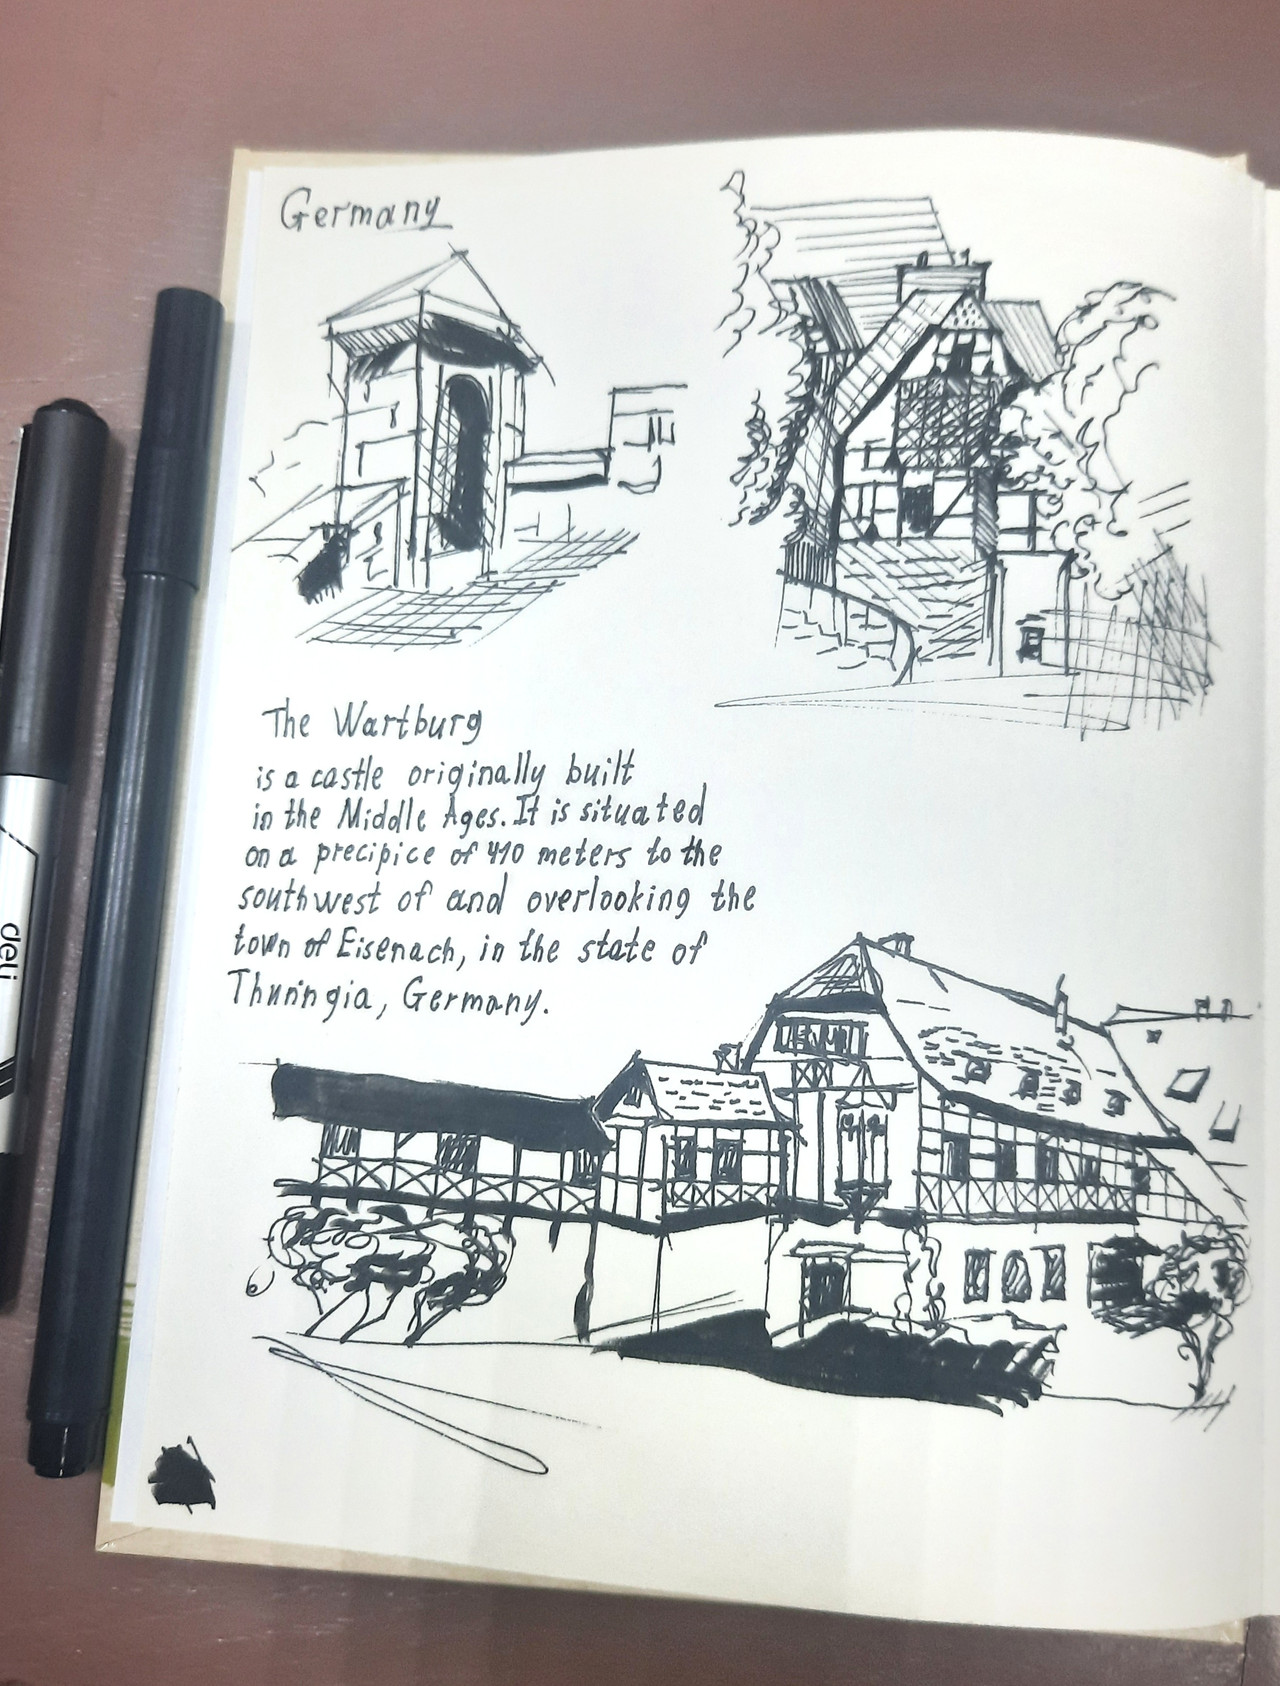 Germany
The Wartburg
is a castle originally built
in the Middle Ages. It is situated
on a precipice of 410 meters to the
southwest of and overlooking the
town of Eisenach, in the state of
Thuringia, Germany.
deli